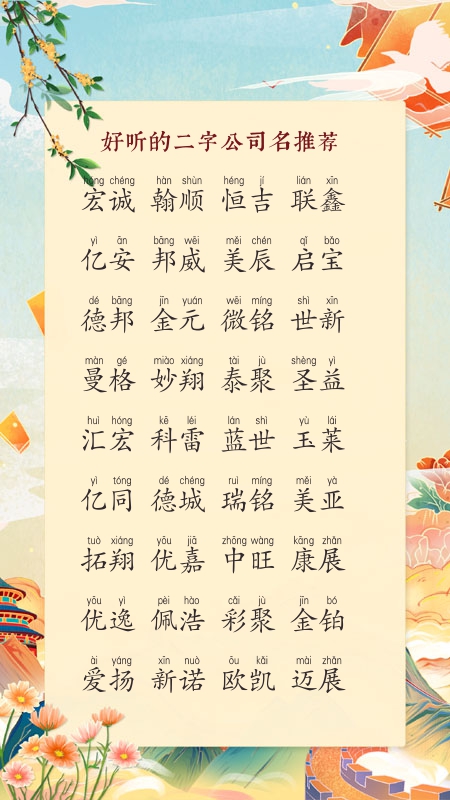 好听的二字公司名推荐
hóng chéng hàn shùn héng jí lián xīn
宏诚 翰顺 恒吉 联鑫
yì ān bāng wēi měi chén qǐ bǎo
亿安 邦威 美辰 启宝
dé bāng jīn yuán wēi míng shì xīn
德邦 金元 微铭 世新
màn gé miào xiáng tài jù shèng yì
曼格 妙翔 泰聚 圣益
huì hóng kē léi lán shì yù lái
汇宏 科雷 蓝世 玉莱
yì tóng dé chéng ruì míng měi yà
亿同 德城 瑞铭 美亚
tuò xiáng yōu jiā zhōng wàng kāng zhǎn
拓翔 优嘉 中旺 康展
yōu yì pèi hào cǎi jù jīn bó
优逸 佩浩 彩聚 金铂
ài yáng xīn nuò ōu kǎi mài zhǎn
爱扬 新诺 欧凯 迈展